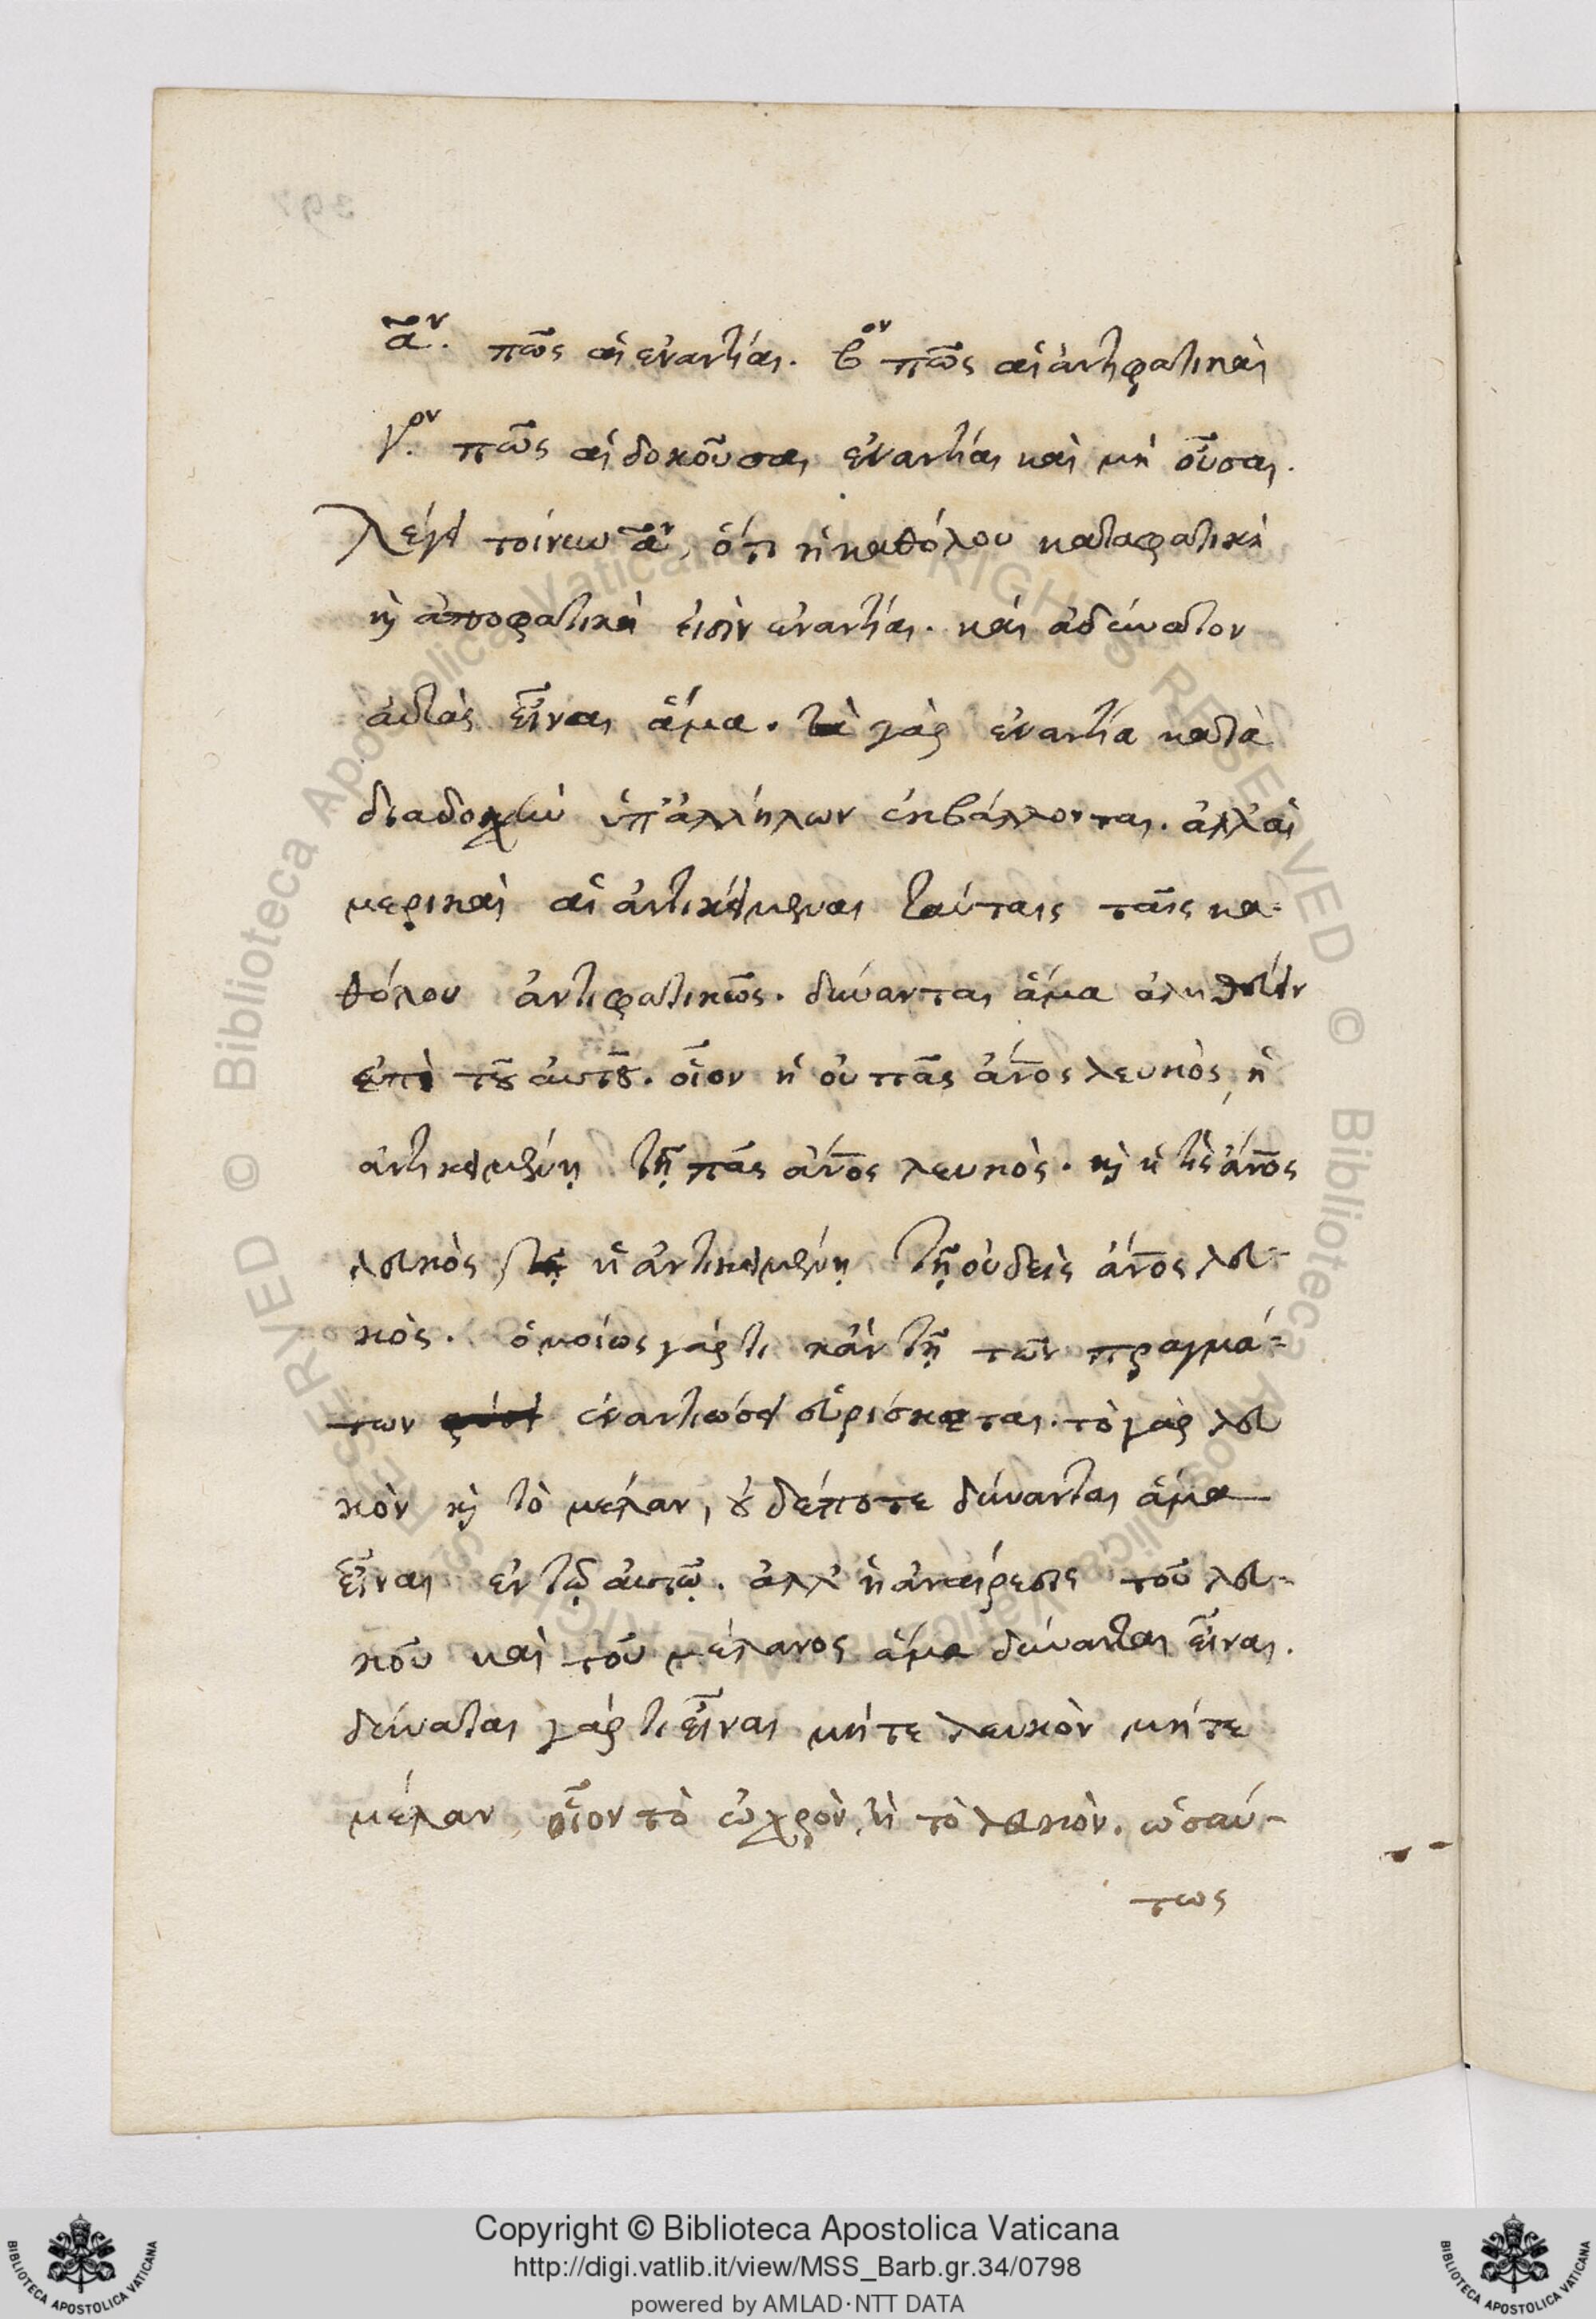 α̃ον. πῶς αἱ ἐναντίαι. βον πῶς αἱ ἀντιφατικαὶ
γ.ον πῶς αἱ δοκοῦσαι ἐναντίαι καὶ μὴ οὖσαι.
λέγει τοίνυν α̃ον, ὅτι ἡ καθόλου καταφατικὴ
κ̀ ἀποφατικὴ εἰσὶν ἐναντίαι. καὶ ἀδύνατον
αὐτὰς εἶναι ἅμα. τὰ γὰρ ἐναντία κατὰ
διαδοχὴν ὑπ' ἀλλήλων ἐκβάλλονται. ἀλλ' αἱ
μερικαὶ αἱ ἀντικείμεναι ταύταις ταῖς κα-
θόλου ἀντιφατικῶς. δύνανται ἅμα ἀληθεύειν
ἐπὶ τȣ͂ αὐτȣ͂. οἷον ἡ οὐ πᾶς ἄν̅ος λευκὸς, ἡ
ἀντικειμένη τῇ πᾶς ἄν̅ος λευκὸς. κ̀ ἡ τὶς ἄν̅ος
λευκὸς, ἡ ἀντικειμένη τῇ οὐδεὶς ἄν̅ος λευ-
κὸς. ὁμοίως γάρ τι κἀν τῇ τῶν πραγμά-
των ἐναντιώσει εὑρίσκεται. τὸ γὰρ λευ
κὸν κ̀ τὸ μέλαν, ȣ̓δέποτε δύνανται ἅμα
εἶναι ἐν τῷ αὐτῷ. ἀλλ' ἡ ἀναίρεσις τοῦ λευ-
κοῦ καὶ τοῦ μέλανος ἅμα δύνανται εἶναι.
δύναται γάρ τι εἶναι μήτε λευκὸν μήτε
μέλαν, οἷον τὸ ὠχρὸν, ἢ τὸ φαιὸν. ὡσαύ-
τως
Copyright © Biblioteca Apostolica Vaticana
http://digi.vatlib.it/view/MSS_Barb.gr.34/0798
powered by AMLAD·NTT DATA